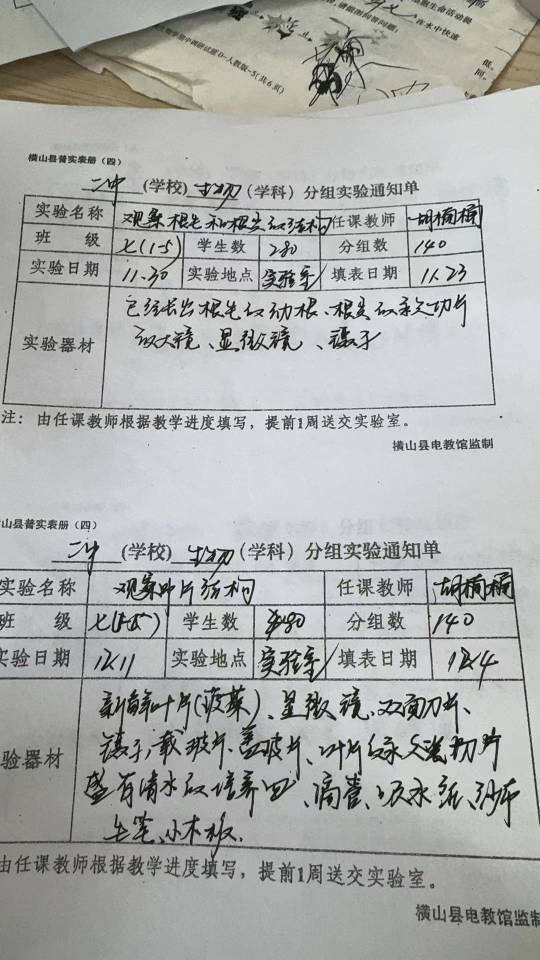 横山县普实表册（四）
二中 (学校) 生物 (学科) 分组实验通知单
实验名称 观察根毛和根尖的结构 任课教师
班 级 七(1-5) 学生数 280 分组数 140
实验日期 11.30 实验地点 实验室 填表日期 11.23
已经长出根毛的幼根、根尖的永久切片
实验器材 放大镜、显微镜、镊子
注：由任课教师根据教学进度填写，提前1周送交实验室。
横山县电教馆监制
山县普实表册（四）
二中 (学校) 生物 (学科) 分组实验通知单
实验名称 观察叶片结构 任课教师
班 级 学生数 280 分组数 140
实验日期 12.11 实验地点 实验室 填表日期 12.4
新鲜叶片(菠菜)、显微镜、双面刀片、
镊子、载玻片、盖玻片、叶片的永久切片
验器材 盛有清水的培养皿、滴管、吸水纸、纱布
毛笔、小木板.
由任课教师根据教学进度填写，提前1周送交实验室。
横山县电教馆监制